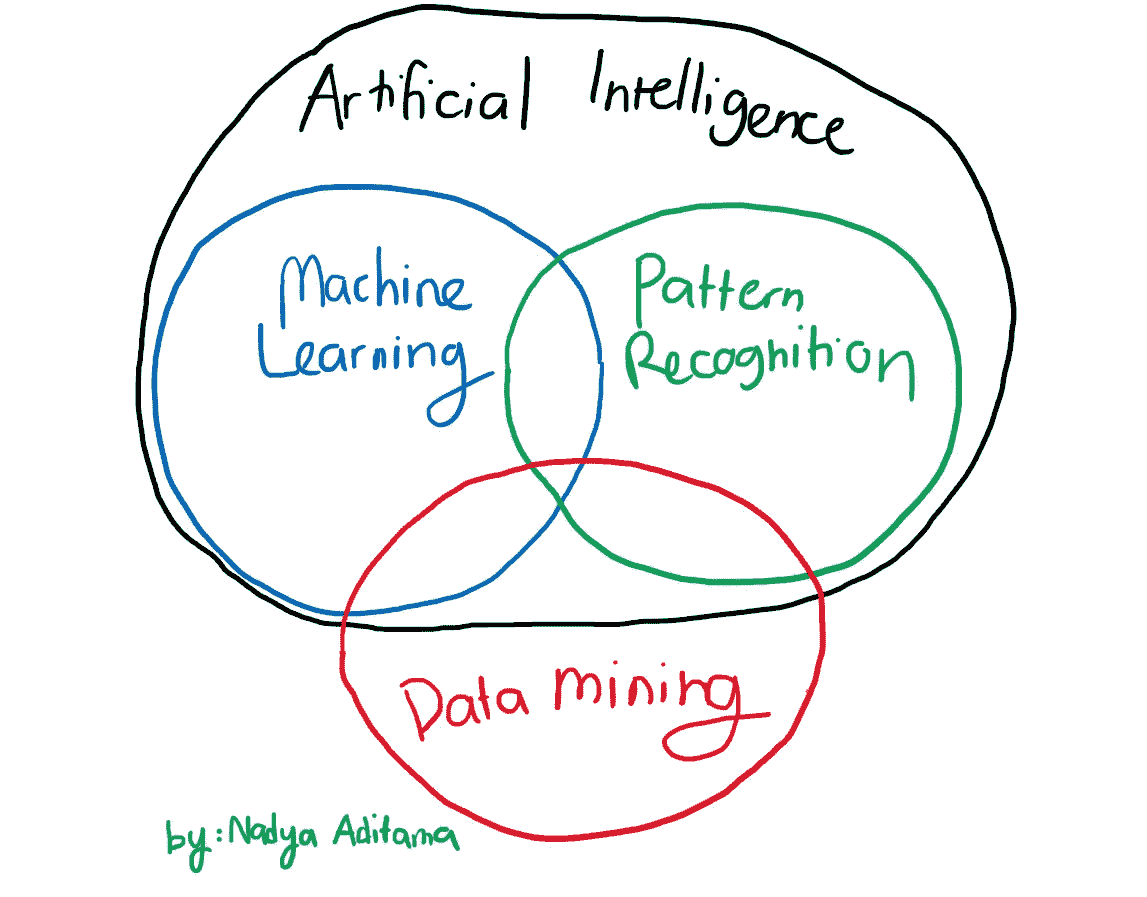 Artificial Intelligence
Machine
Learning
Pattern
Recognition
Data mining
by: Nadya Aditama